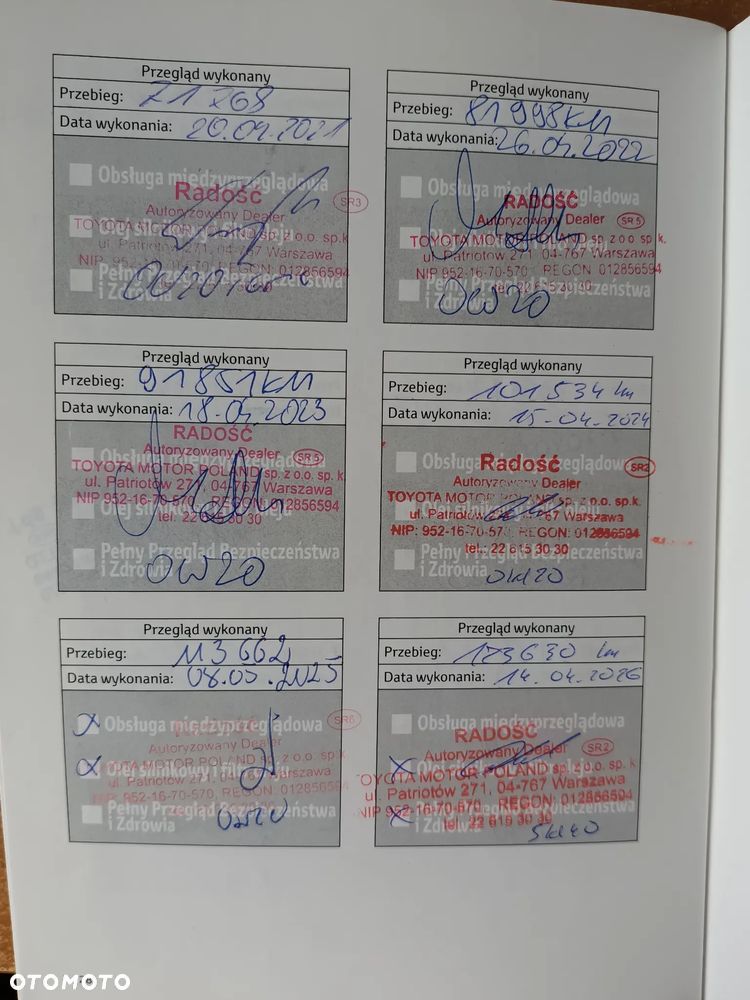 Przegląd wykonany
Przebieg: 71 268
Data wykonania: 20.04.2021
Obsługa międzyprzeglądowa
Radość
SR3
Autoryzowany Dealer
TOYOTA MOTOR POLAND sp. z o.o. sp.k.
ul. Patriotów 271, 04-767 Warszawa
NIP 952-16-70-570 REGON: 012856594
Pełny Przegląd Bezpieczeństwa
i Zdrowia
Przegląd wykonany
Przebieg: 81 998 KM
Data wykonania: 26.04.2022
Obsługa międzyprzeglądowa
RADOŚĆ
Autoryzowany Dealer
SR5
TOYOTA MOTOR POLAND sp. z o.o. sp. k.
ul. Patriotów 271, 04-767 Warszawa
NIP 952-16-70-570 REGON 012856594
tel. 22 615 30 30
Pełny Przegląd Bezpieczeństwa
i Zdrowia
0W20
Przegląd wykonany
Przebieg: 91 851 KM
Data wykonania: 18.04.2023
RADOŚĆ
Obsługa międzyprzeglądowa
Autoryzowany Dealer
SR5
TOYOTA MOTOR POLAND sp. z o.o. sp. k.
ul. Patriotów 271, 04-767 Warszawa
NIP 952-16-70-570 REGON 012856594
Olej silnikowy i filtr oleju
tel. 22 615 30 30
Pełny Przegląd Bezpieczeństwa
i Zdrowia
0W20
Przegląd wykonany
Przebieg: 101 534 km
Data wykonania: 15.04.2024
Obsługa międzyprzeglądowa
Radość
SR2
Autoryzowany Dealer
TOYOTA MOTOR POLAND sp. z o.o. sp.k.
ul. Patriotów 271, 04-767 Warszawa
NIP: 952-16-70-570 REGON: 012856594
tel.: 22 615 30 30
Pełny Przegląd Bezpieczeństwa
i Zdrowia
0W20
Przegląd wykonany
Przebieg: 113 662
Data wykonania: 08.05.2025
X Obsługa międzyprzeglądowa
SR6
Autoryzowany Dealer
TOYOTA MOTOR POLAND sp. z o.o. sp. k.
X Olej silnikowy i filtr oleju
ul. Patriotów 271, 04-767 Warszawa
NIP 952-16-70-570 REGON: 012856594
Pełny Przegląd Bezpieczeństwa
i Zdrowia
0W20
Przegląd wykonany
Przebieg: 123630 km
Data wykonania: 14.04.2026
Obsługa międzyprzeglądowa
RADOŚĆ
Autoryzowany Dealer
SR2
X
TOYOTA MOTOR POLAND sp. z o.o. sp. k.
ul. Patriotów 271, 04-767 Warszawa
NIP 952-16-70-570 REGON: 012856594
X
tel. 22 615 30 30
i Zdrowia
OTOMOTO